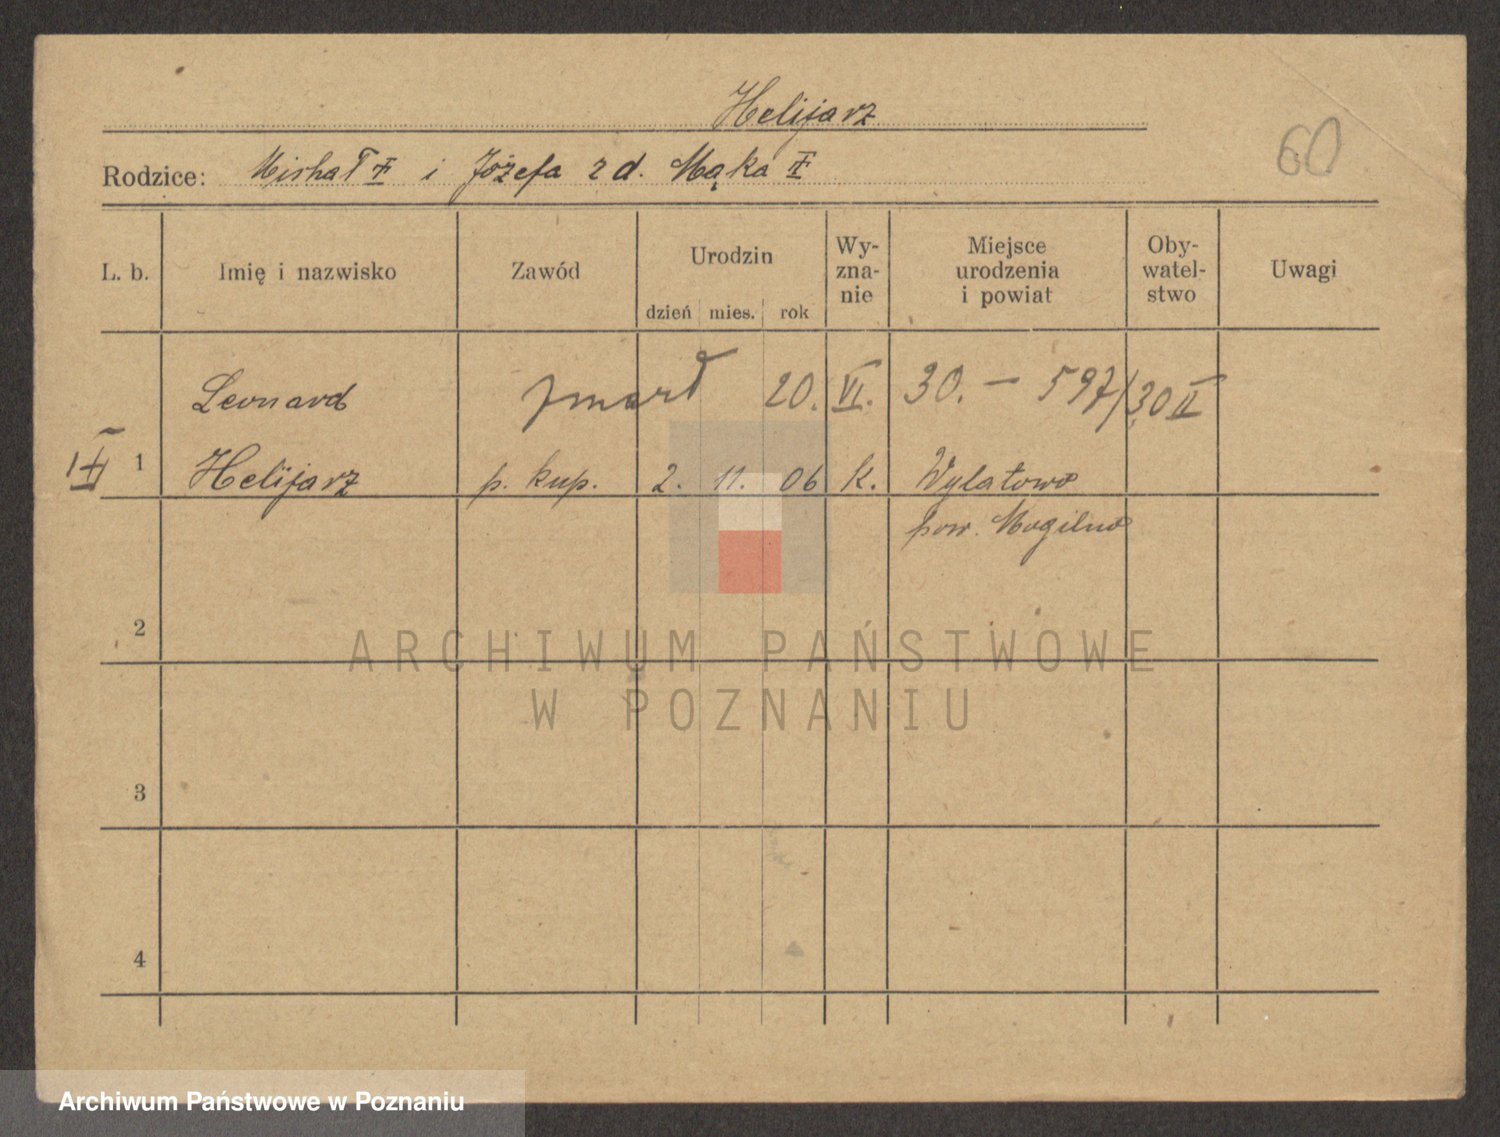 Helijarz
60
Rodzice: Michał i Józefa z d. Mąka
L. b. Imię i nazwisko Zawód Urodzin dzień mies. rok Wy-zna-nie Miejsce urodzenia i powiat Oby-watel-stwo Uwagi
Leonard zmarł 20. VI. 30. – 597/30 II
1 Helijarz p. kup. 2. 11. 06 k. Wylatowo
pow. Mogilno
2
3
4
ARCHIWUM PAŃSTWOWE
W POZNANIU
Archiwum Państwowe w Poznaniu